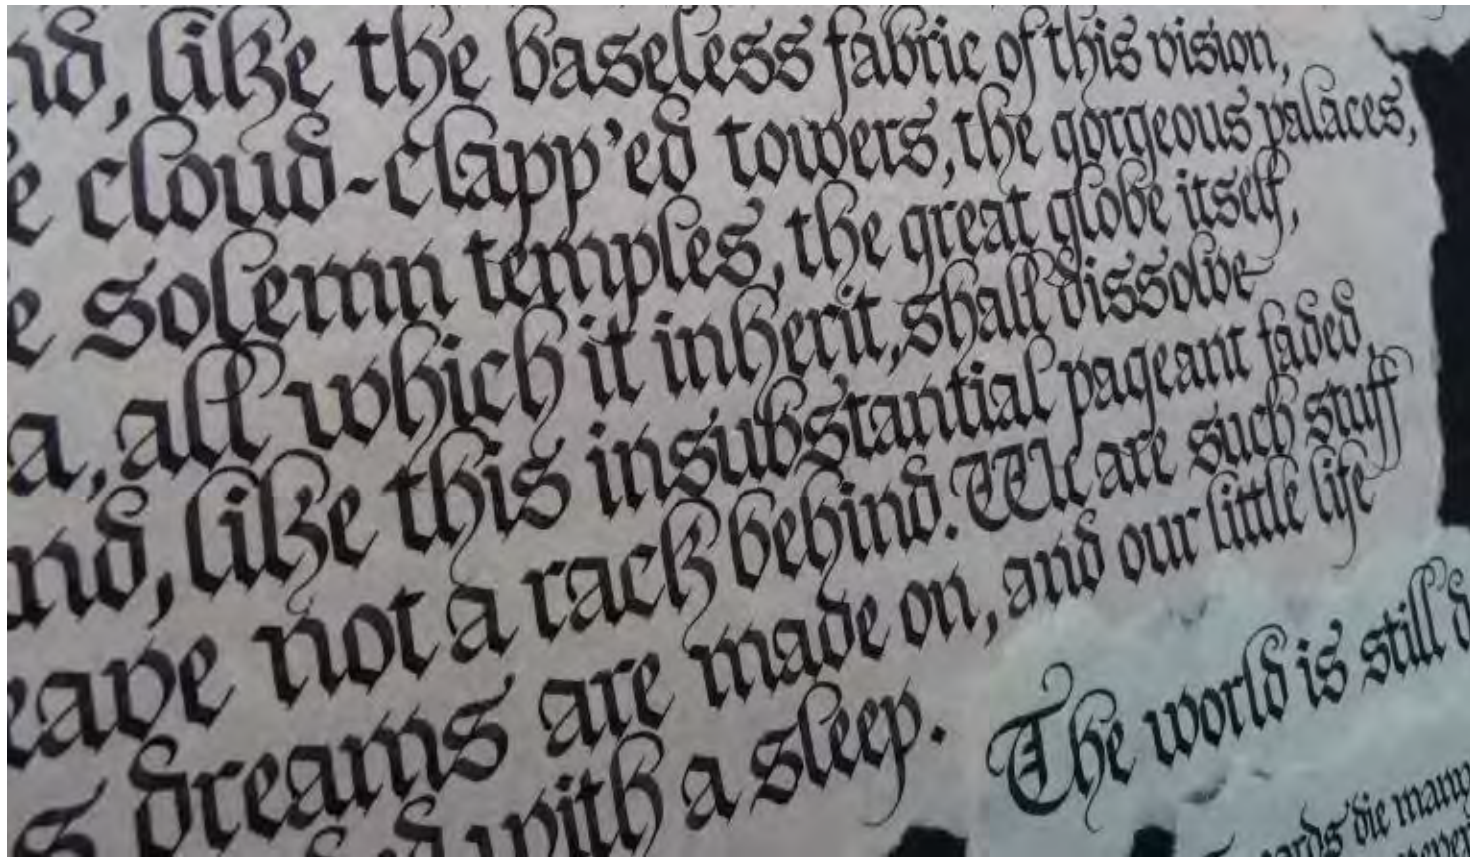 nd, like the baseless fabric of this vision,
e cloud-clapp'ed towers, the gorgeous palaces,
e solemn temples, the great globe itself,
a, all which it inherit, shall dissolve
nd, like this insubstantial pageant faded,
eave not a rack behind. We are such stuff
s dreams are made on, and our little life
ed with a sleep.
The world is still d
ards die many